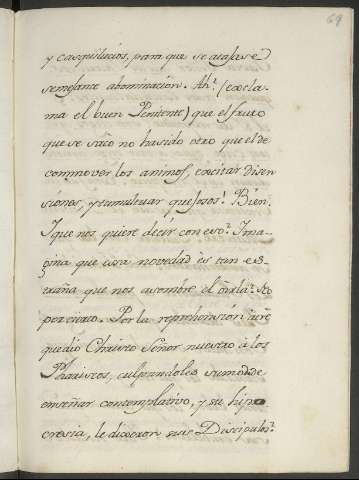 69
y casquilucios, para que se atajase
semejante abominacion. Ah! (excla-
ma el buen Penitente) que el fruto
que se sacò no ha sido otro que el de
conmover los animos, excitar disen
siones, y tumultuar quejosos! Bien.
I que nos quiere decir con eso? Ima-
gina que esa novedad es tan es-
traña que nos asombre el oirla?
por cierto. Por la reprehension
que dio Christo Señor nuestro à los
Phariseos, culpandoles su modo de
enseñar contemplativo, y su hipo
cresia, le dixeron sus Discipulos: